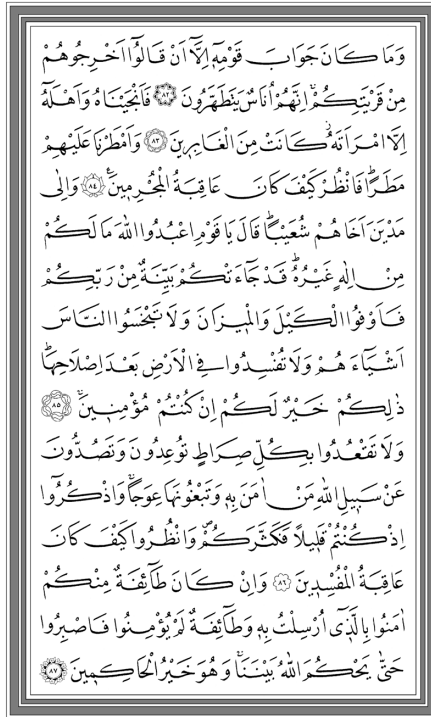 وَمَا كَانَ جَوَابَ قَوْمِهٖٓ اِلَّٓا اَنْ قَالُٓوا اَخْرِجُوهُمْ
مِنْ قَرْيَتِكُمْۚ اِنَّهُمْ اُنَاسٌ يَتَطَهَّرُونَ ﴿٨٢﴾ فَاَنْجَيْنَاهُ وَاَهْلَهُٓ
اِلَّا امْرَاَتَهُۘ كَانَتْ مِنَ الْغَابِرٖينَ ﴿٨٣﴾ وَاَمْطَرْنَا عَلَيْهِمْ
مَطَرًاۜ فَانْظُرْ كَيْفَ كَانَ عَاقِبَةُ الْمُجْرِمٖينَࣖ ﴿٨٤﴾ وَاِلٰى
مَدْيَنَ اَخَاهُمْ شُعَيْبًاۜ قَالَ يَا قَوْمِ اعْبُدُوا اللّٰهَ مَا لَكُمْ
مِنْ اِلٰهٍ غَيْرُهُۜ قَدْ جَٓاءَتْكُمْ بَيِّنَةٌ مِنْ رَبِّكُمْ
فَاَوْفُوا الْكَيْلَ وَالْمٖيزَانَ وَلَا تَبْخَسُوا النَّاسَ
اَشْيَٓاءَهُمْ وَلَا تُفْسِدُوا فِي الْاَرْضِ بَعْدَ اِصْلَاحِهَاۜ
ذٰلِكُمْ خَيْرٌ لَكُمْ اِنْ كُنْتُمْ مُؤْمِنٖينَۚ ﴿٨٥﴾
وَلَا تَقْعُدُوا بِكُلِّ صِرَاطٍ تُوعِدُونَ وَتَصُدُّونَ
عَنْ سَبٖيلِ اللّٰهِ مَنْ اٰمَنَ بِهٖ وَتَبْغُونَهَا عِوَجًاۚ وَاذْكُرُٓوا
اِذْ كُنْتُمْ قَلٖيلًا فَكَثَّرَكُمْۖ وَانْظُرُوا كَيْفَ كَانَ
عَاقِبَةُ الْمُفْسِدٖينَ ﴿٨٦﴾ وَاِنْ كَانَ طَٓائِفَةٌ مِنْكُمْ
اٰمَنُوا بِالَّذٖٓي اُرْسِلْتُ بِهٖ وَطَٓائِفَةٌ لَمْ يُؤْمِنُوا فَاصْبِرُوا
حَتّٰى يَحْكُمَ اللّٰهُ بَيْنَنَاۚ وَهُوَ خَيْرُ الْحَاكِمٖينَ ﴿٨٧﴾